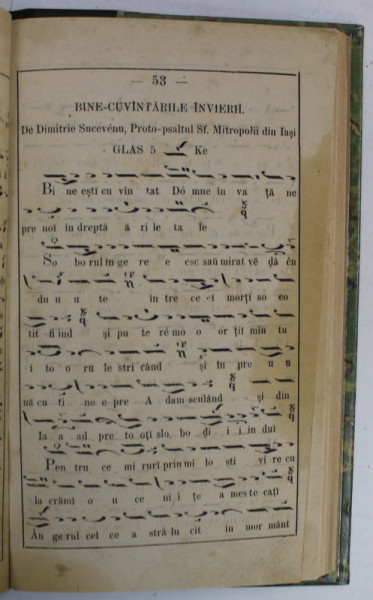 — 53 —
BINE-CUVÎNTĂRILE ÎNVIERII.
De Dimitrie Sucevénu, Proto-psaltul Sf. Mitropolii din Iași
GLAS 5 Ke
Bi ne ești cu vîn tat Dó mne în va ță ne
pre noi în dreptă ă ri le ta le
So bo rul în ge re e esc sau mirat vĕ dĕ ĕn
du u u te în tre ce ei morți so co
tit fi ind și pu te ré mo o or ții mîn tu
i to o ru le stri cănd și în pre u ŭ
nă cu ti ne e pre A dam sculănd și din
Ia a ad pre to oți slo bo di i i în du
Pen tru ce mi ruri prin mi lo sti vi re cu
la crămi o u ce ni i țe a mes te cați
Ân ge rul cel ce a stră lu cit în mor mânt